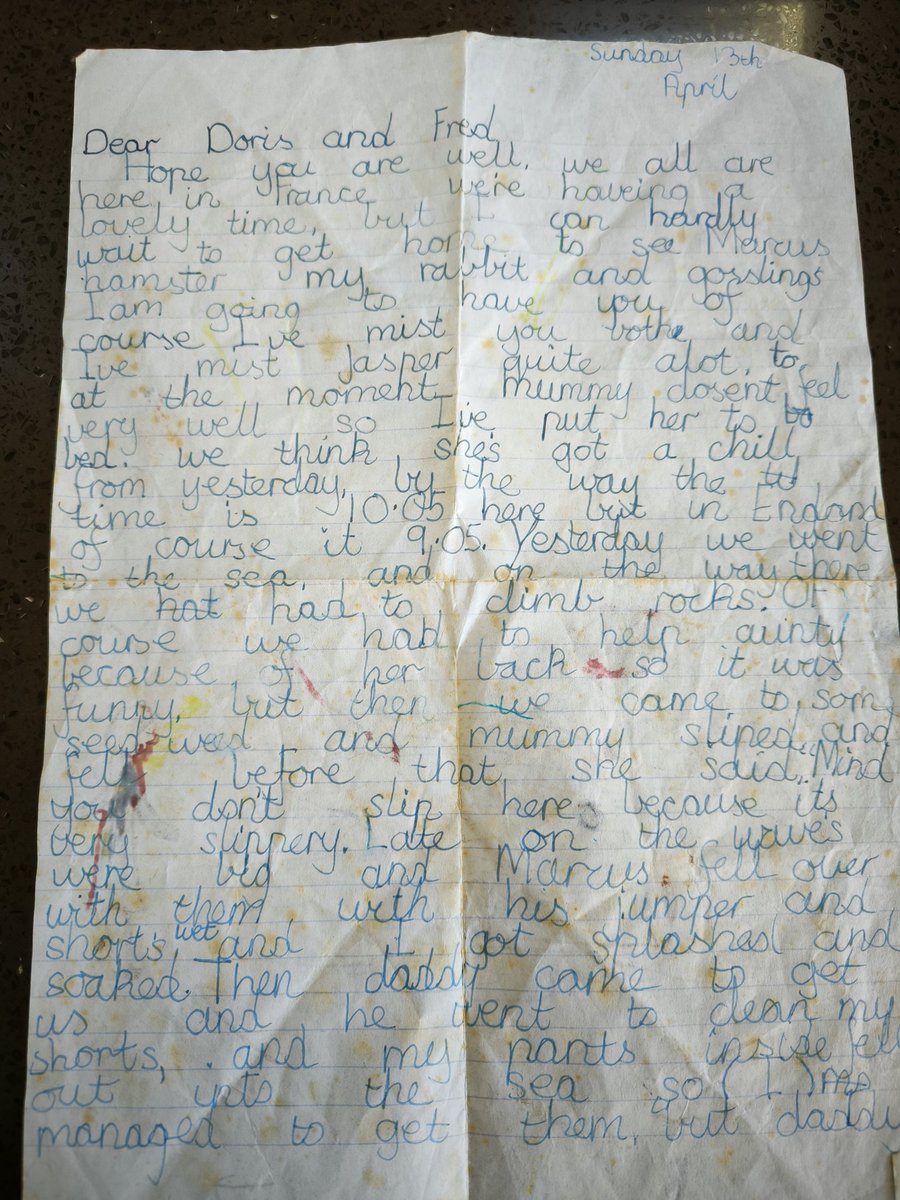 Sunday 13th
April
Dear Doris and Fred
Hope you are well, we all are
here in France were haveing a
lovely time, but I can hardly
wait to get home to see Marcus
hamster my rabbit and gosslings
I am going to have you of
course I've mist you bothe and
I've mist Jasper quite alot, to,
at the moment mummy dosent feel
very well so I've put her to
bed. we think she's got a chill
from yesterday, by the way the
time is 10:05 here but in England
of course it 9:05. Yesterday we went
to the sea, and on the way there
we hat had to climb rocks. Of
course we had to help aunty
because of her back so it was
funny, but then we came to som
seed weed and mummy sliped and
fell before that, she said "Mind
you don't slip here because its
very slippery. Late on the waves
were big and Marcus fell over
with them with his jumper and
shorts wet and I got splashed and
soaked. Then daddy came to get
us and he went to clean my
shorts, and my pants inside fell
out into the sea so (I)
managed to get them, but daddy